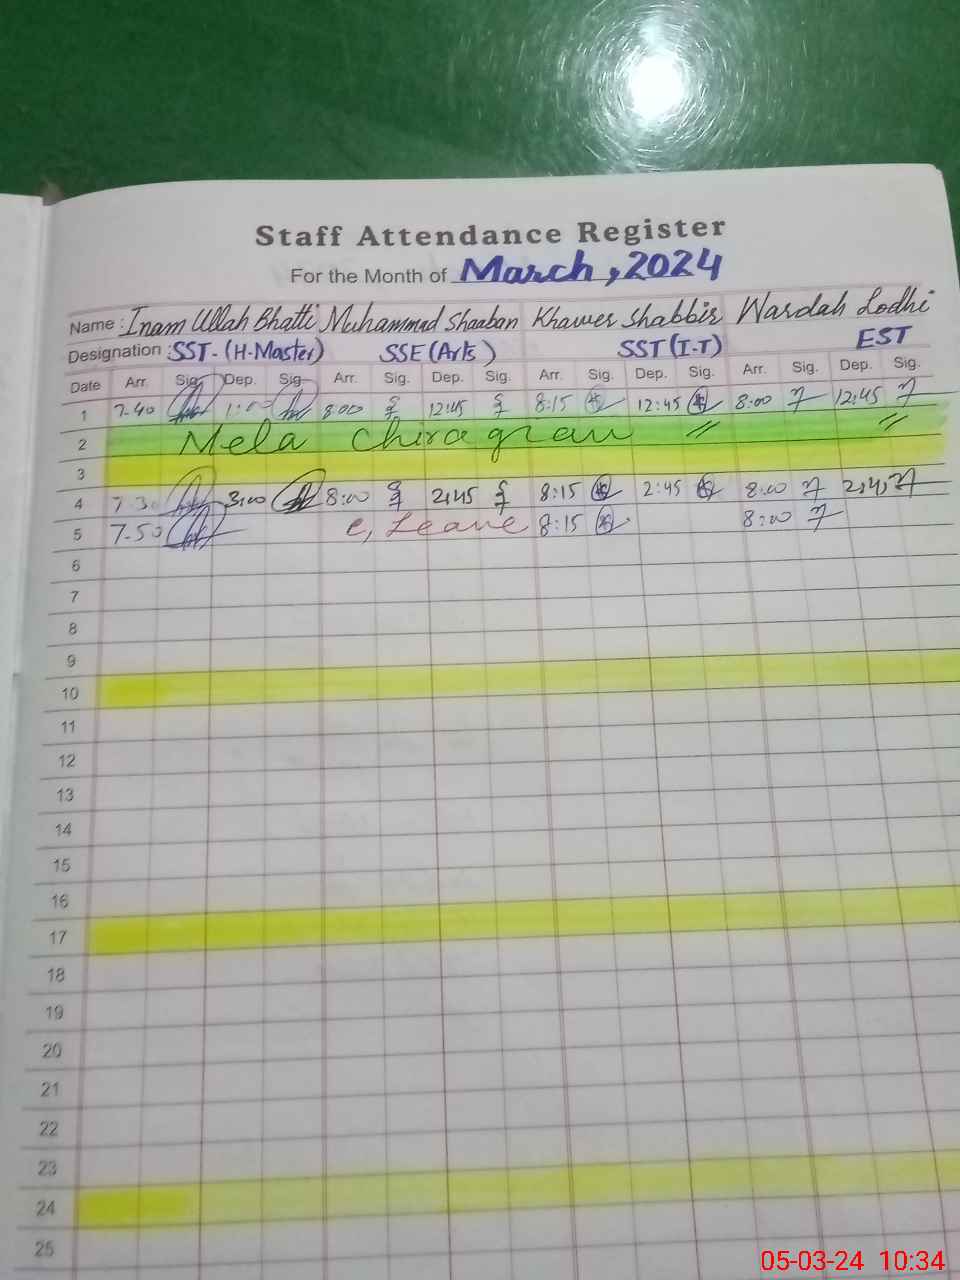 Staff Attendance Register
For the Month of March, 2024
Name : Inam Ullah Bhatti Muhammad Shaaban Khawer Shabbir Wardah Lodhi
Designation : SST-(H-Master) SSE (Arts) SST (I-T) EST
Date Arr. Sig. Dep. Sig. Arr. Sig. Dep. Sig. Arr. Sig. Dep. Sig. Arr. Sig. Dep. Sig.
1 7-40 1:00 8:00 12:45 8:15 12:45 8:00 12:45
2 Mela chiragan " "
3
4 7-30 3:00 8:00 2:45 8:15 2:45 8:00
5 7-50 c, Leave 8:15 8:00
6
7
8
9
10
11
12
13
14
15
16
17
18
19
20
21
22
23
24
25
05-03-24 10:34